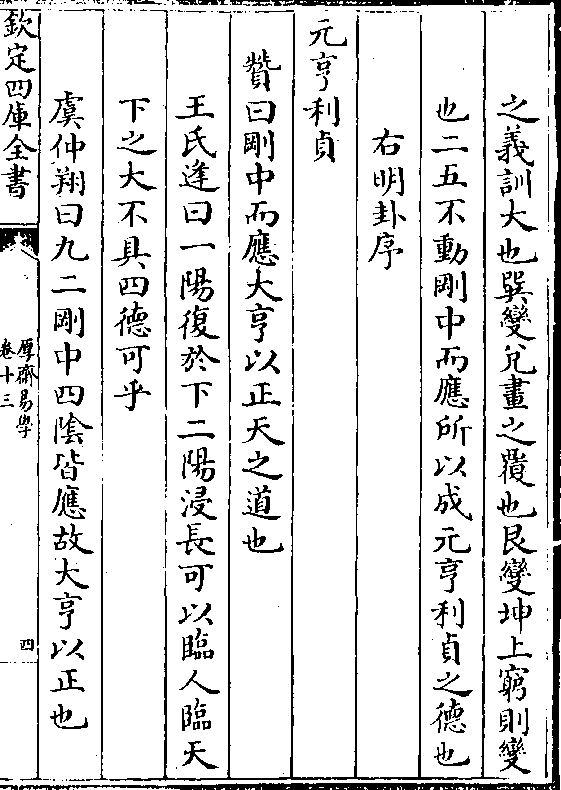 之義訓大也巽變兌畫之覆也艮變坤上窮則變
也二五不動剛中而應所以成元亨利貞之德也
右明卦序
元亨利貞
贊曰剛中而應大亨以正天之道也
王氏逢曰一陽復於下二陽浸長可以臨人臨天
下之大不具四德可乎
虞仲翔曰九二剛中四陰皆應故大亨以正也
欽定四庫全書
厚齋易學
卷十三
四